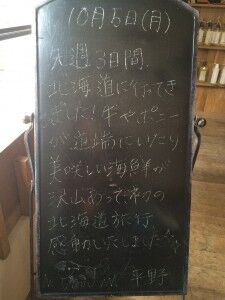 10月5日(月)
先週3日間、
北海道に行ってき
ました!牛やポニー
が道端にいたり
美味しい海鮮が
沢山あって初の
北海道旅行
感動致しました☆
平野